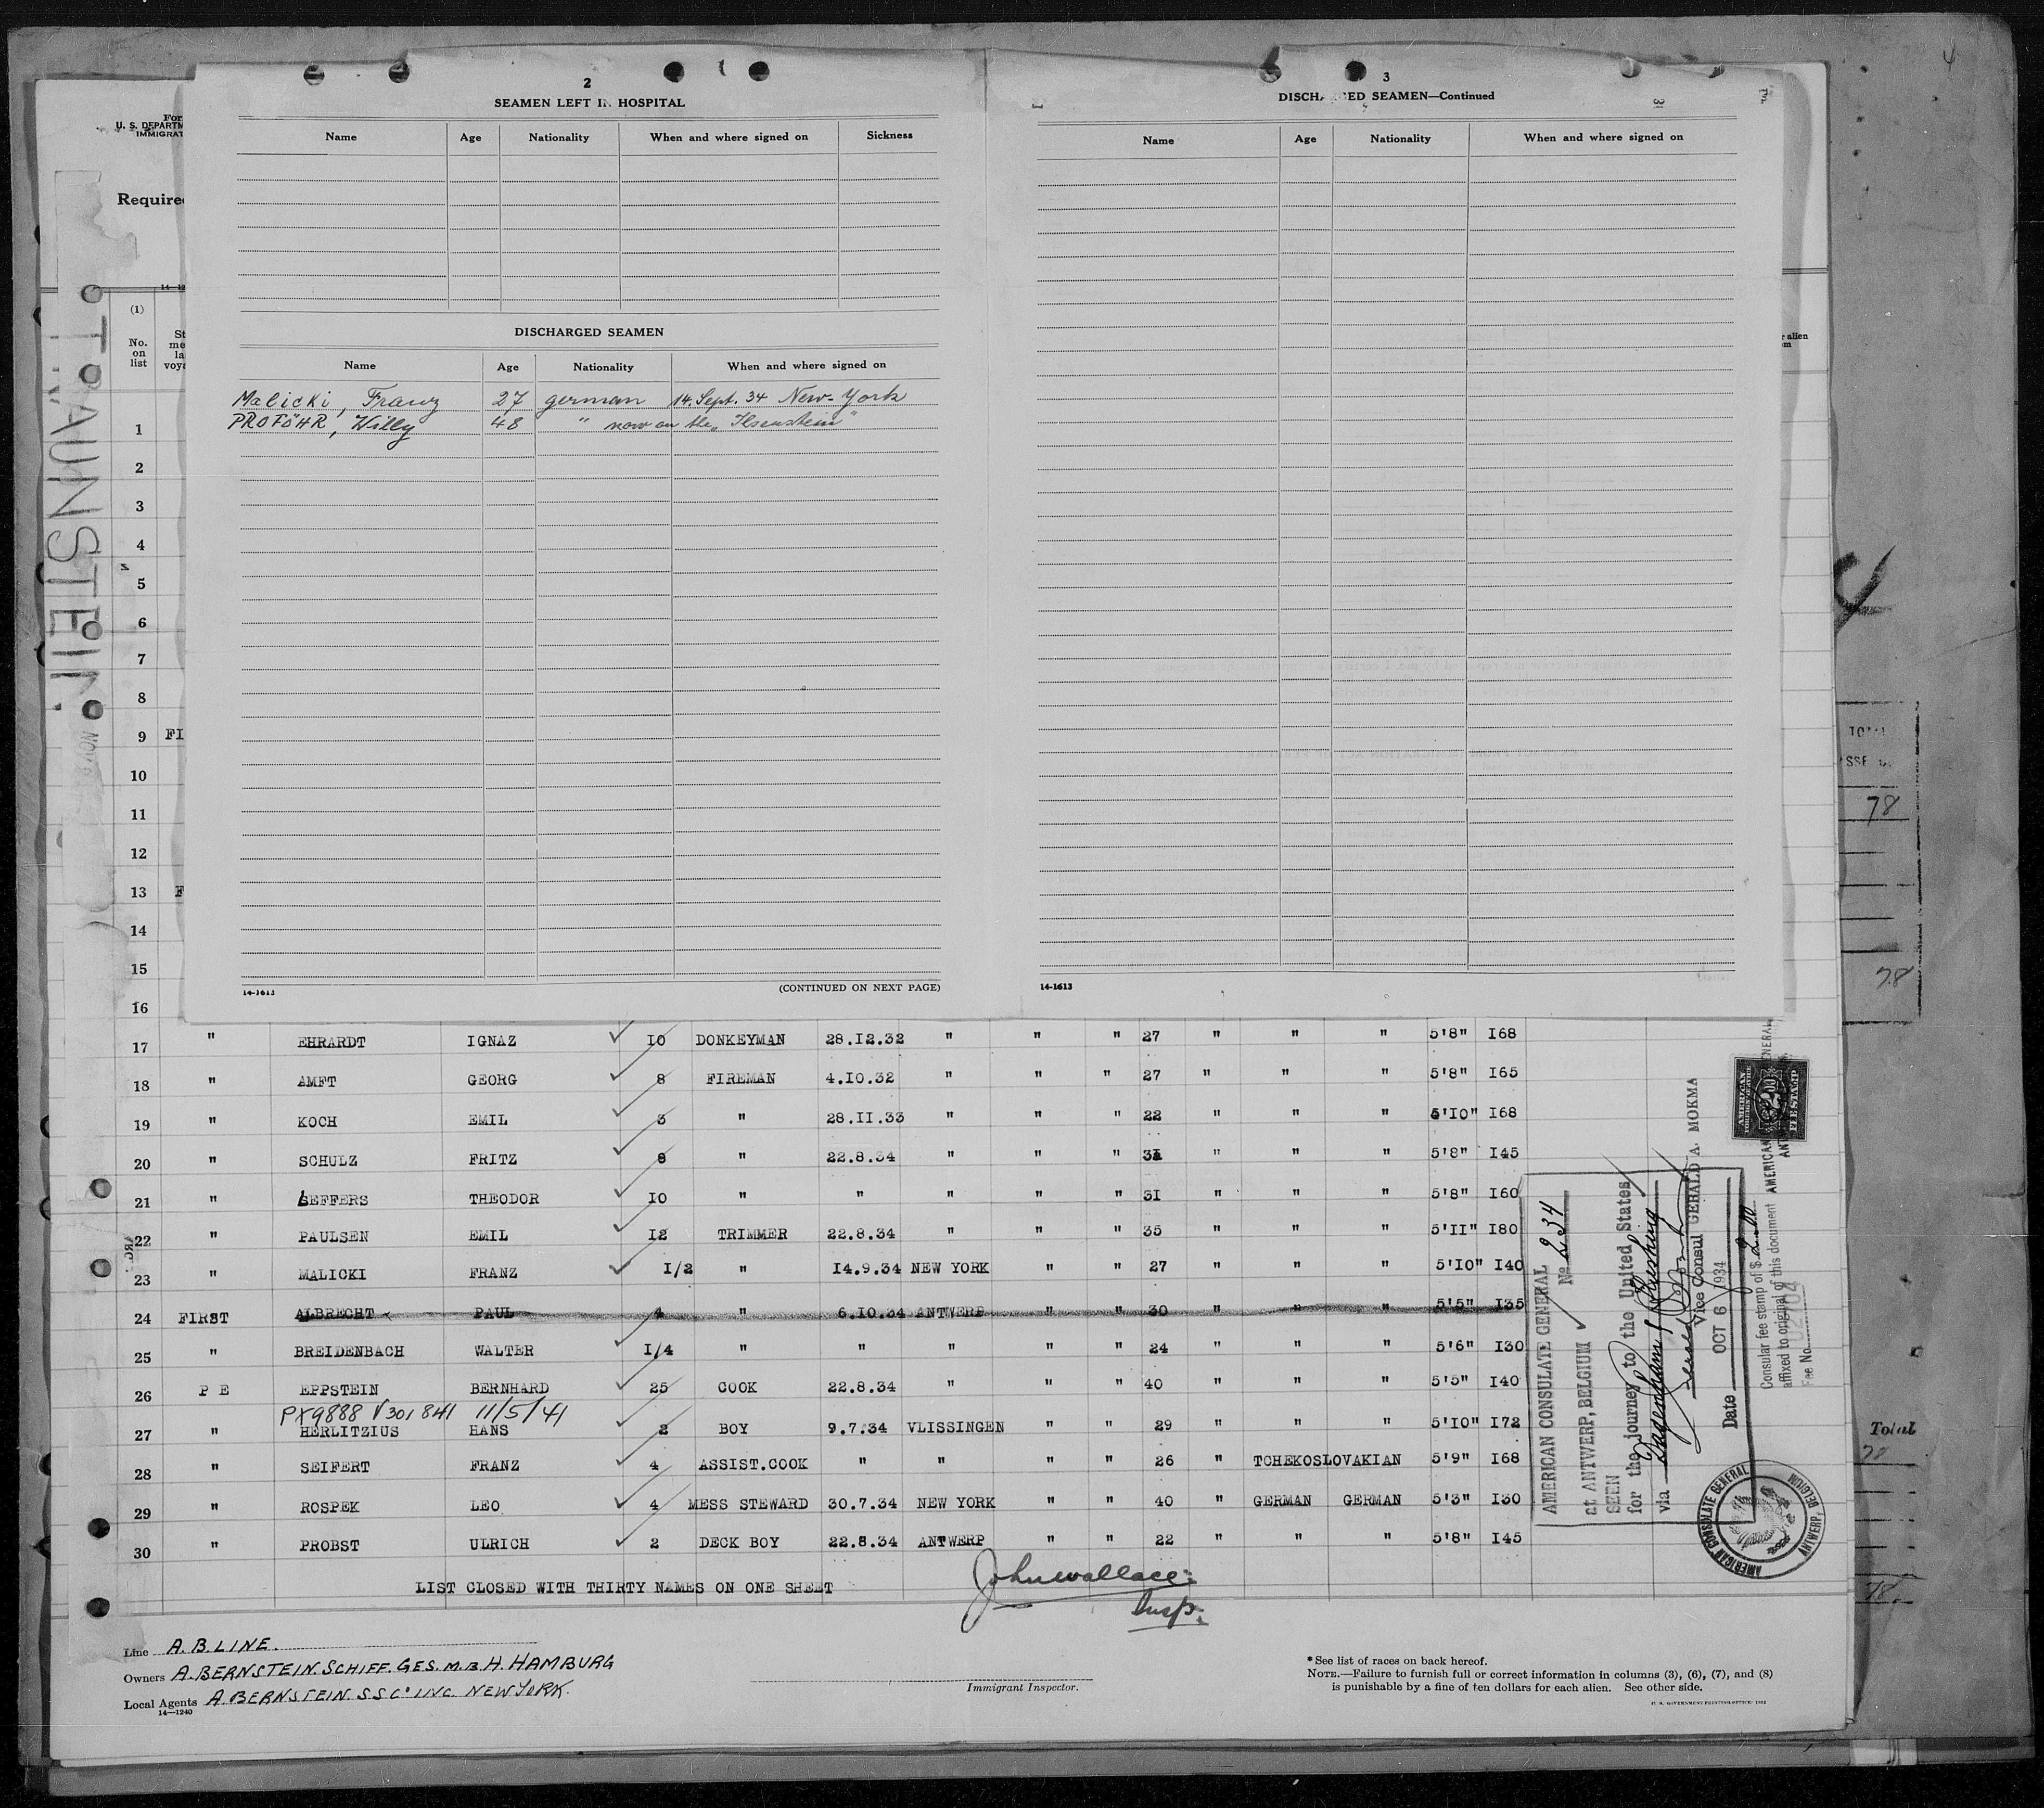 4
2
SEAMEN LEFT IN HOSPITAL
Name Age Nationality When and where signed on Sickness
DISCHARGED SEAMEN
Name Age Nationality When and where signed on
Malicki, Franz 27 german 14. Sept. 34 New-York
PROFÖHR, Willy 48 " now on the „Ilsenstein"
14-1613
(CONTINUED ON NEXT PAGE)
3
DISCHARGED SEAMEN—Continued
Name Age Nationality When and where signed on
14-1613
For
U. S. DEPARTM
IMMIGRAT
Require
(1)
No. on list
St
me
la
voya
r alien
m
TRAUNSTEIN
1
2
3
4
5
6
7
8
9 FI
10
11
12
13 F
14
15
16
17 " EHRARDT IGNAZ 10 DONKEYMAN 28.12.32 " " " 27 " " " 5'8" 168
18 " AMFT GEORG 8 FIREMAN 4.10.32 " " " 27 " " " 5'8" 165
19 " KOCH EMIL 3 " 28.11.33 " " " 22 " " " 5'10" 168
20 " SCHULZ FRITZ 8 " 22.8.34 " " " 31 " " " 5'8" 145
21 " LEFFERS THEODOR 10 " " " " " 31 " " " 5'8" 160
22 " PAULSEN EMIL 12 TRIMMER 22.8.34 " " " 35 " " " 5'11" 180
23 " MALICKI FRANZ 1/2 " 14.9.34 NEW YORK " " 27 " " " 5'10" 140
24 FIRST ALBRECHT PAUL 4 " 6.10.34 ANTWERP " " 30 " " " 5'5" 135
25 " BREIDENBACH WALTER 1/4 " " " " " 24 " " " 5'6" 130
26 P E EPPSTEIN BERNHARD 25 COOK 22.8.34 " " " 40 " " " 5'5" 140
PX9888 V301841 11/5/41
27 " HERLITZIUS HANS 2 BOY 9.7.34 VLISSINGEN " " 29 " " " 5'10" 172
28 " SEIFERT FRANZ 4 ASSIST.COOK " " " " 26 " TCHEKOSLOVAKIAN 5'9" 168
29 " ROSPEK LEO 4 MESS STEWARD 30.7.34 NEW YORK " " 40 " GERMAN GERMAN 5'3" 130
30 " PROBST ULRICH 2 DECK BOY 22.8.34 ANTWERP " " 22 " " " 5'8" 145
LIST CLOSED WITH THIRTY NAMES ON ONE SHEET
John Wallace
Insp.
Line A.B.LINE.
Owners A.BERNSTEIN.SCHIFF.GES.M.B.H.HAMBURG
Local Agents A.BERNSTEIN.S S Co INC. NEW YORK.
14—1240
Immigrant Inspector.
* See list of races on back hereof.
NOTE.—Failure to furnish full or correct information in columns (3), (6), (7), and (8)
is punishable by a fine of ten dollars for each alien. See other side.
U. S. GOVERNMENT PRINTING OFFICE: 1932
AMERICAN CONSULATE GENERAL
No 234
at ANTWERP, BELGIUM
SEEN
for the journey to the United States
via Dagenham / Flushing
Vice Consul GERALD A. MOKMA
Date OCT 6 1934
Consular fee stamp of $ 2.00
affixed to original of this document
Fee No.
AMERICAN CONSULATE GENERAL
ANTWERP, BELGIUM
AMERICAN
FEE STAMP
78
78
Total
78
78